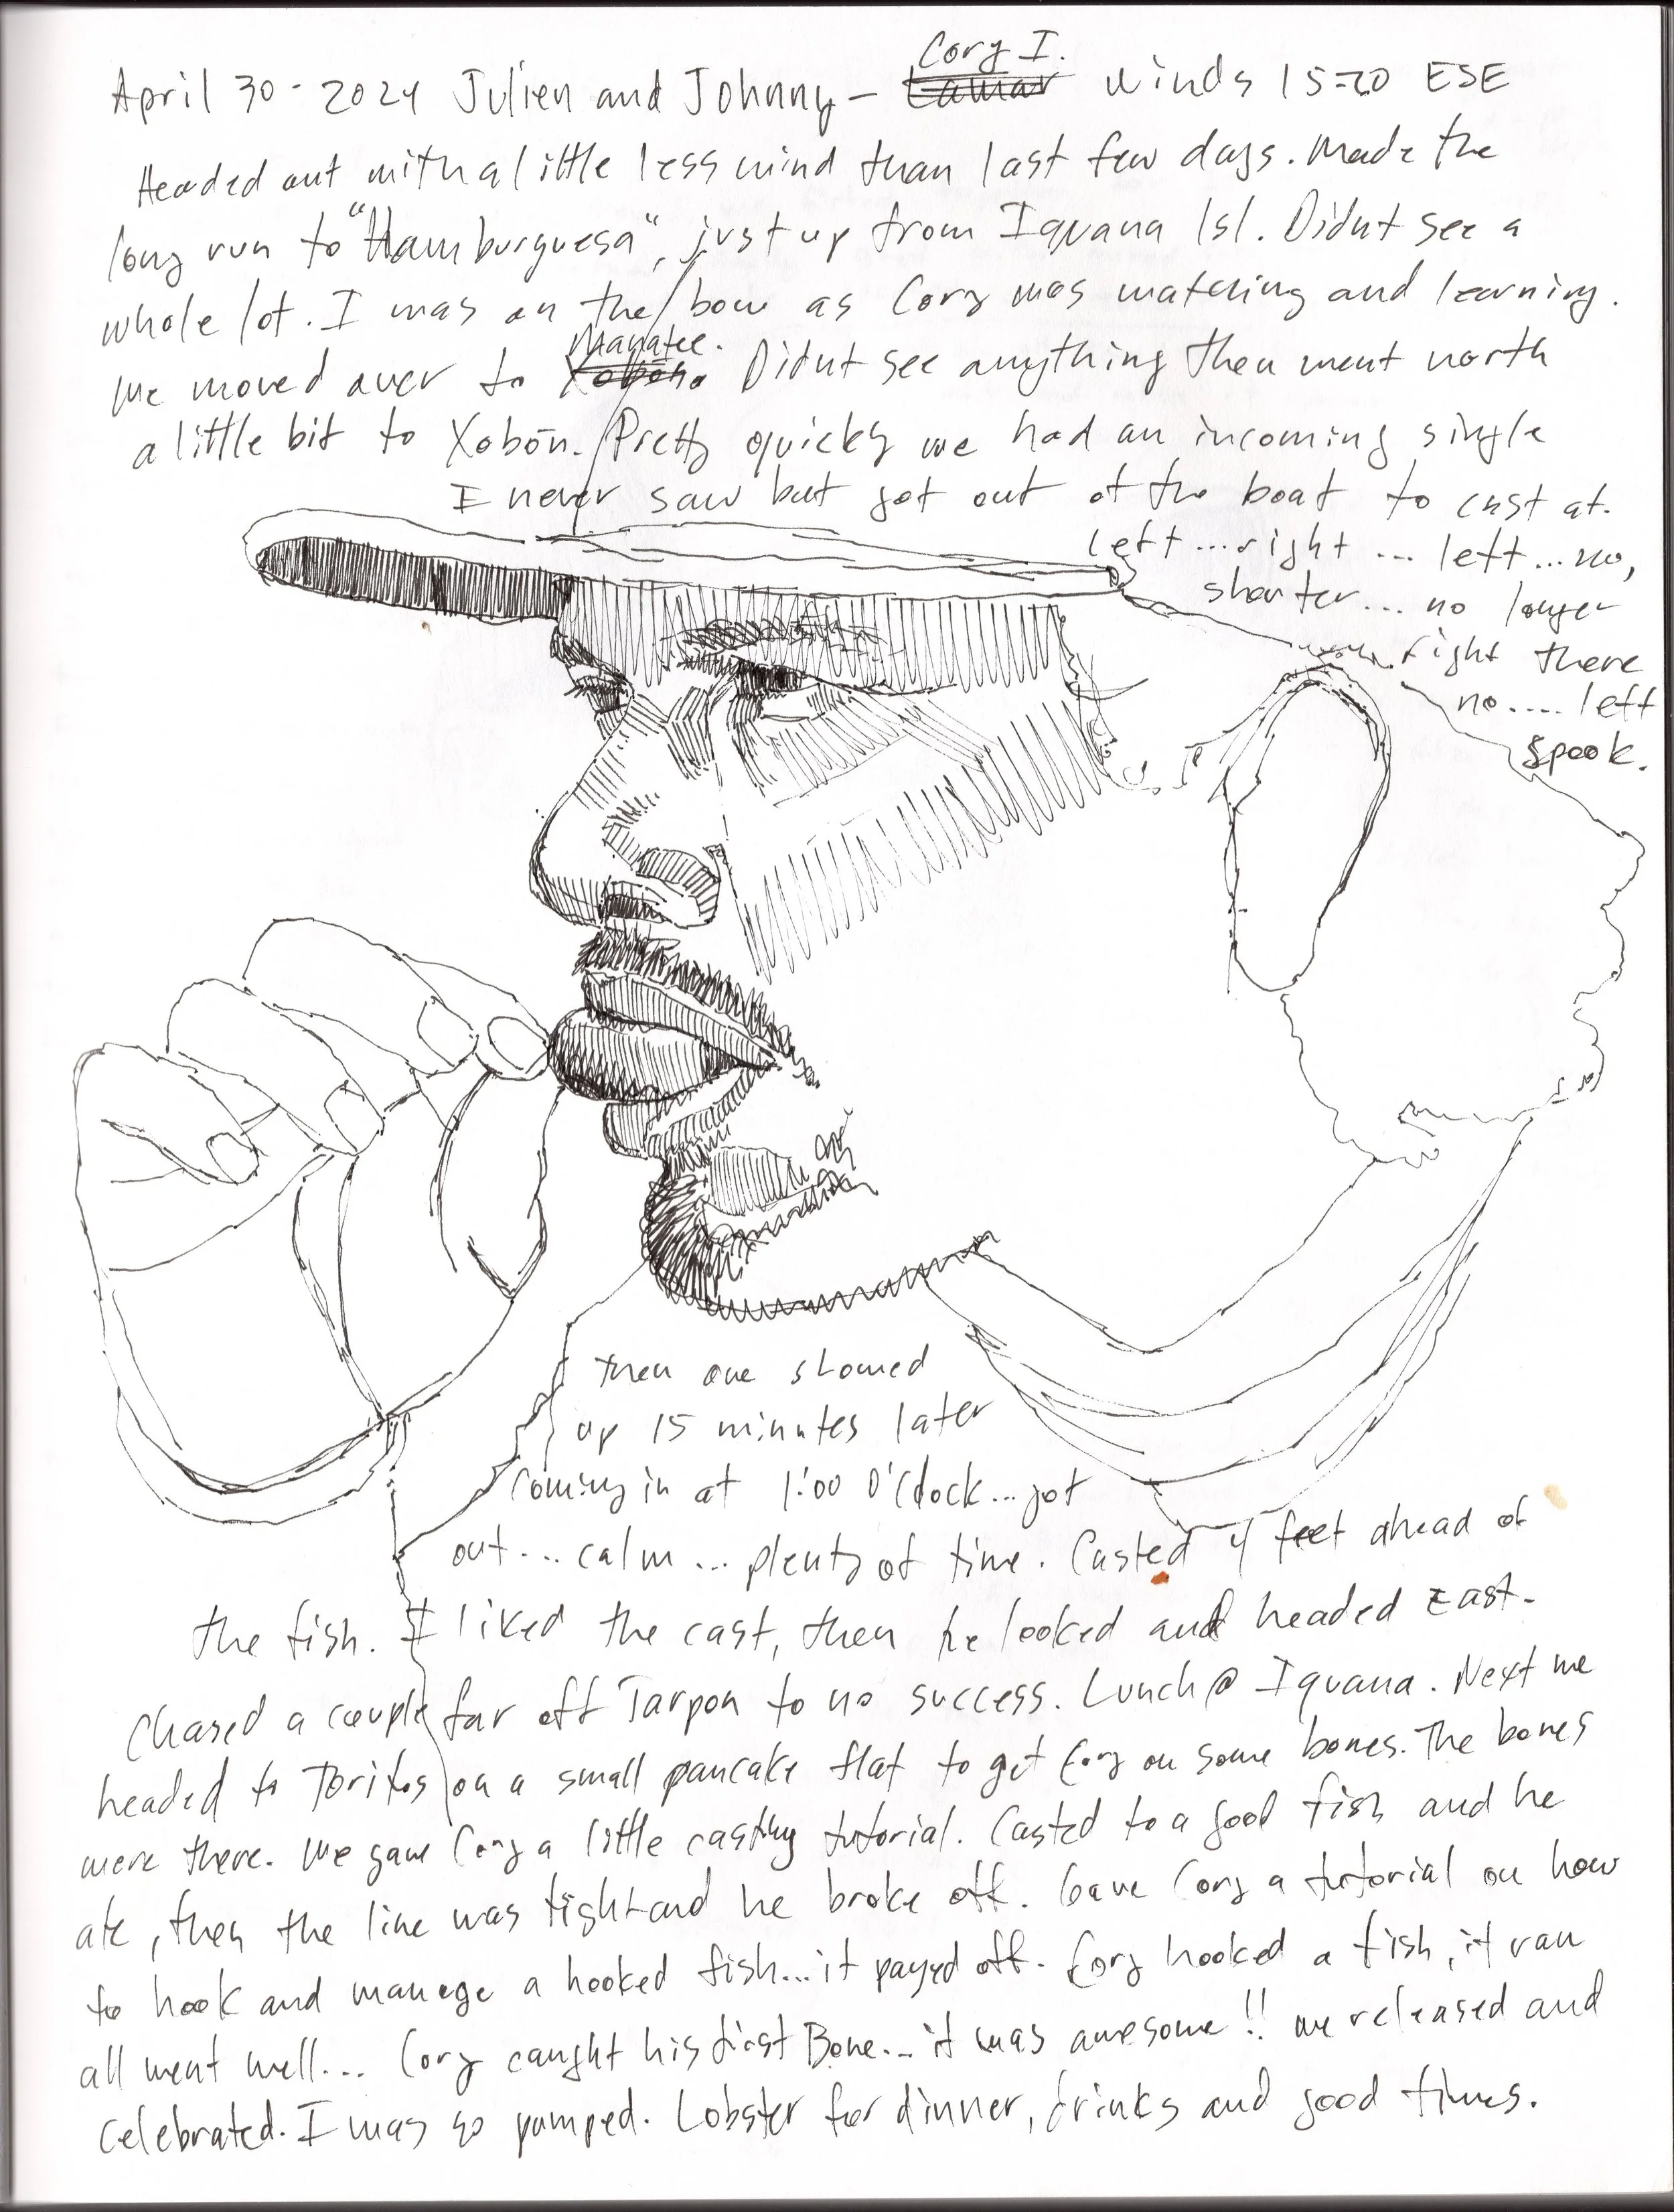 Cory I.
April 30 - 2024 Julien and Johnny - Lamar winds 15-20 ESE
Headed out with a little less wind than last few days. Made the
long run to "Hamburguesa", just up from Iguana Isl. Didnt see a
whole lot. I was on the bow as Cory was watching and learning.
Manatee.
We moved over to Xobón. Didnt see anything then went north
a little bit to Xobón. Pretty quickly we had an incoming single
I never saw but got out of the boat to cast at.
left...right...left...no,
shorter... no longer
right there
no.... left
spook.
then one showed
up 15 minutes later
coming in at 1:00 O'Clock...got
out... calm... plenty of time. Casted 4 feet ahead of
the fish. I liked the cast, then he looked and headed East.
Chased a couple far off Tarpon to no success. Lunch @ Iguana. Next we
headed to Toritos on a small pancake flat to get Cory on some bones. The bones
were there. We gave Cory a little casting tutorial. Casted to a good fish and he
ate, then the line was tight and he broke off. Gave Cory a tutorial on how
to hook and manege a hooked fish...it payed off. Cory hooked a fish, it ran
all went well... Cory caught his first Bone... it was awesome!! we released and
celebrated. I was so pumped. Lobster for dinner, drinks and good times.